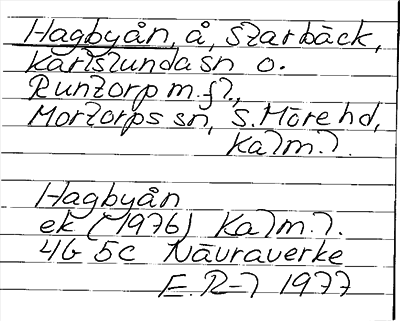 Hagbyån, å, Starbäck,
Karlslunda sn o.
Runtorp m.fl.,
Mortorps sn, S. Möre hd,
Kalm. l.
Hagbyån
ek (1976) Kalm. l.
4G 5c Nävraverke
E. R-l 1977